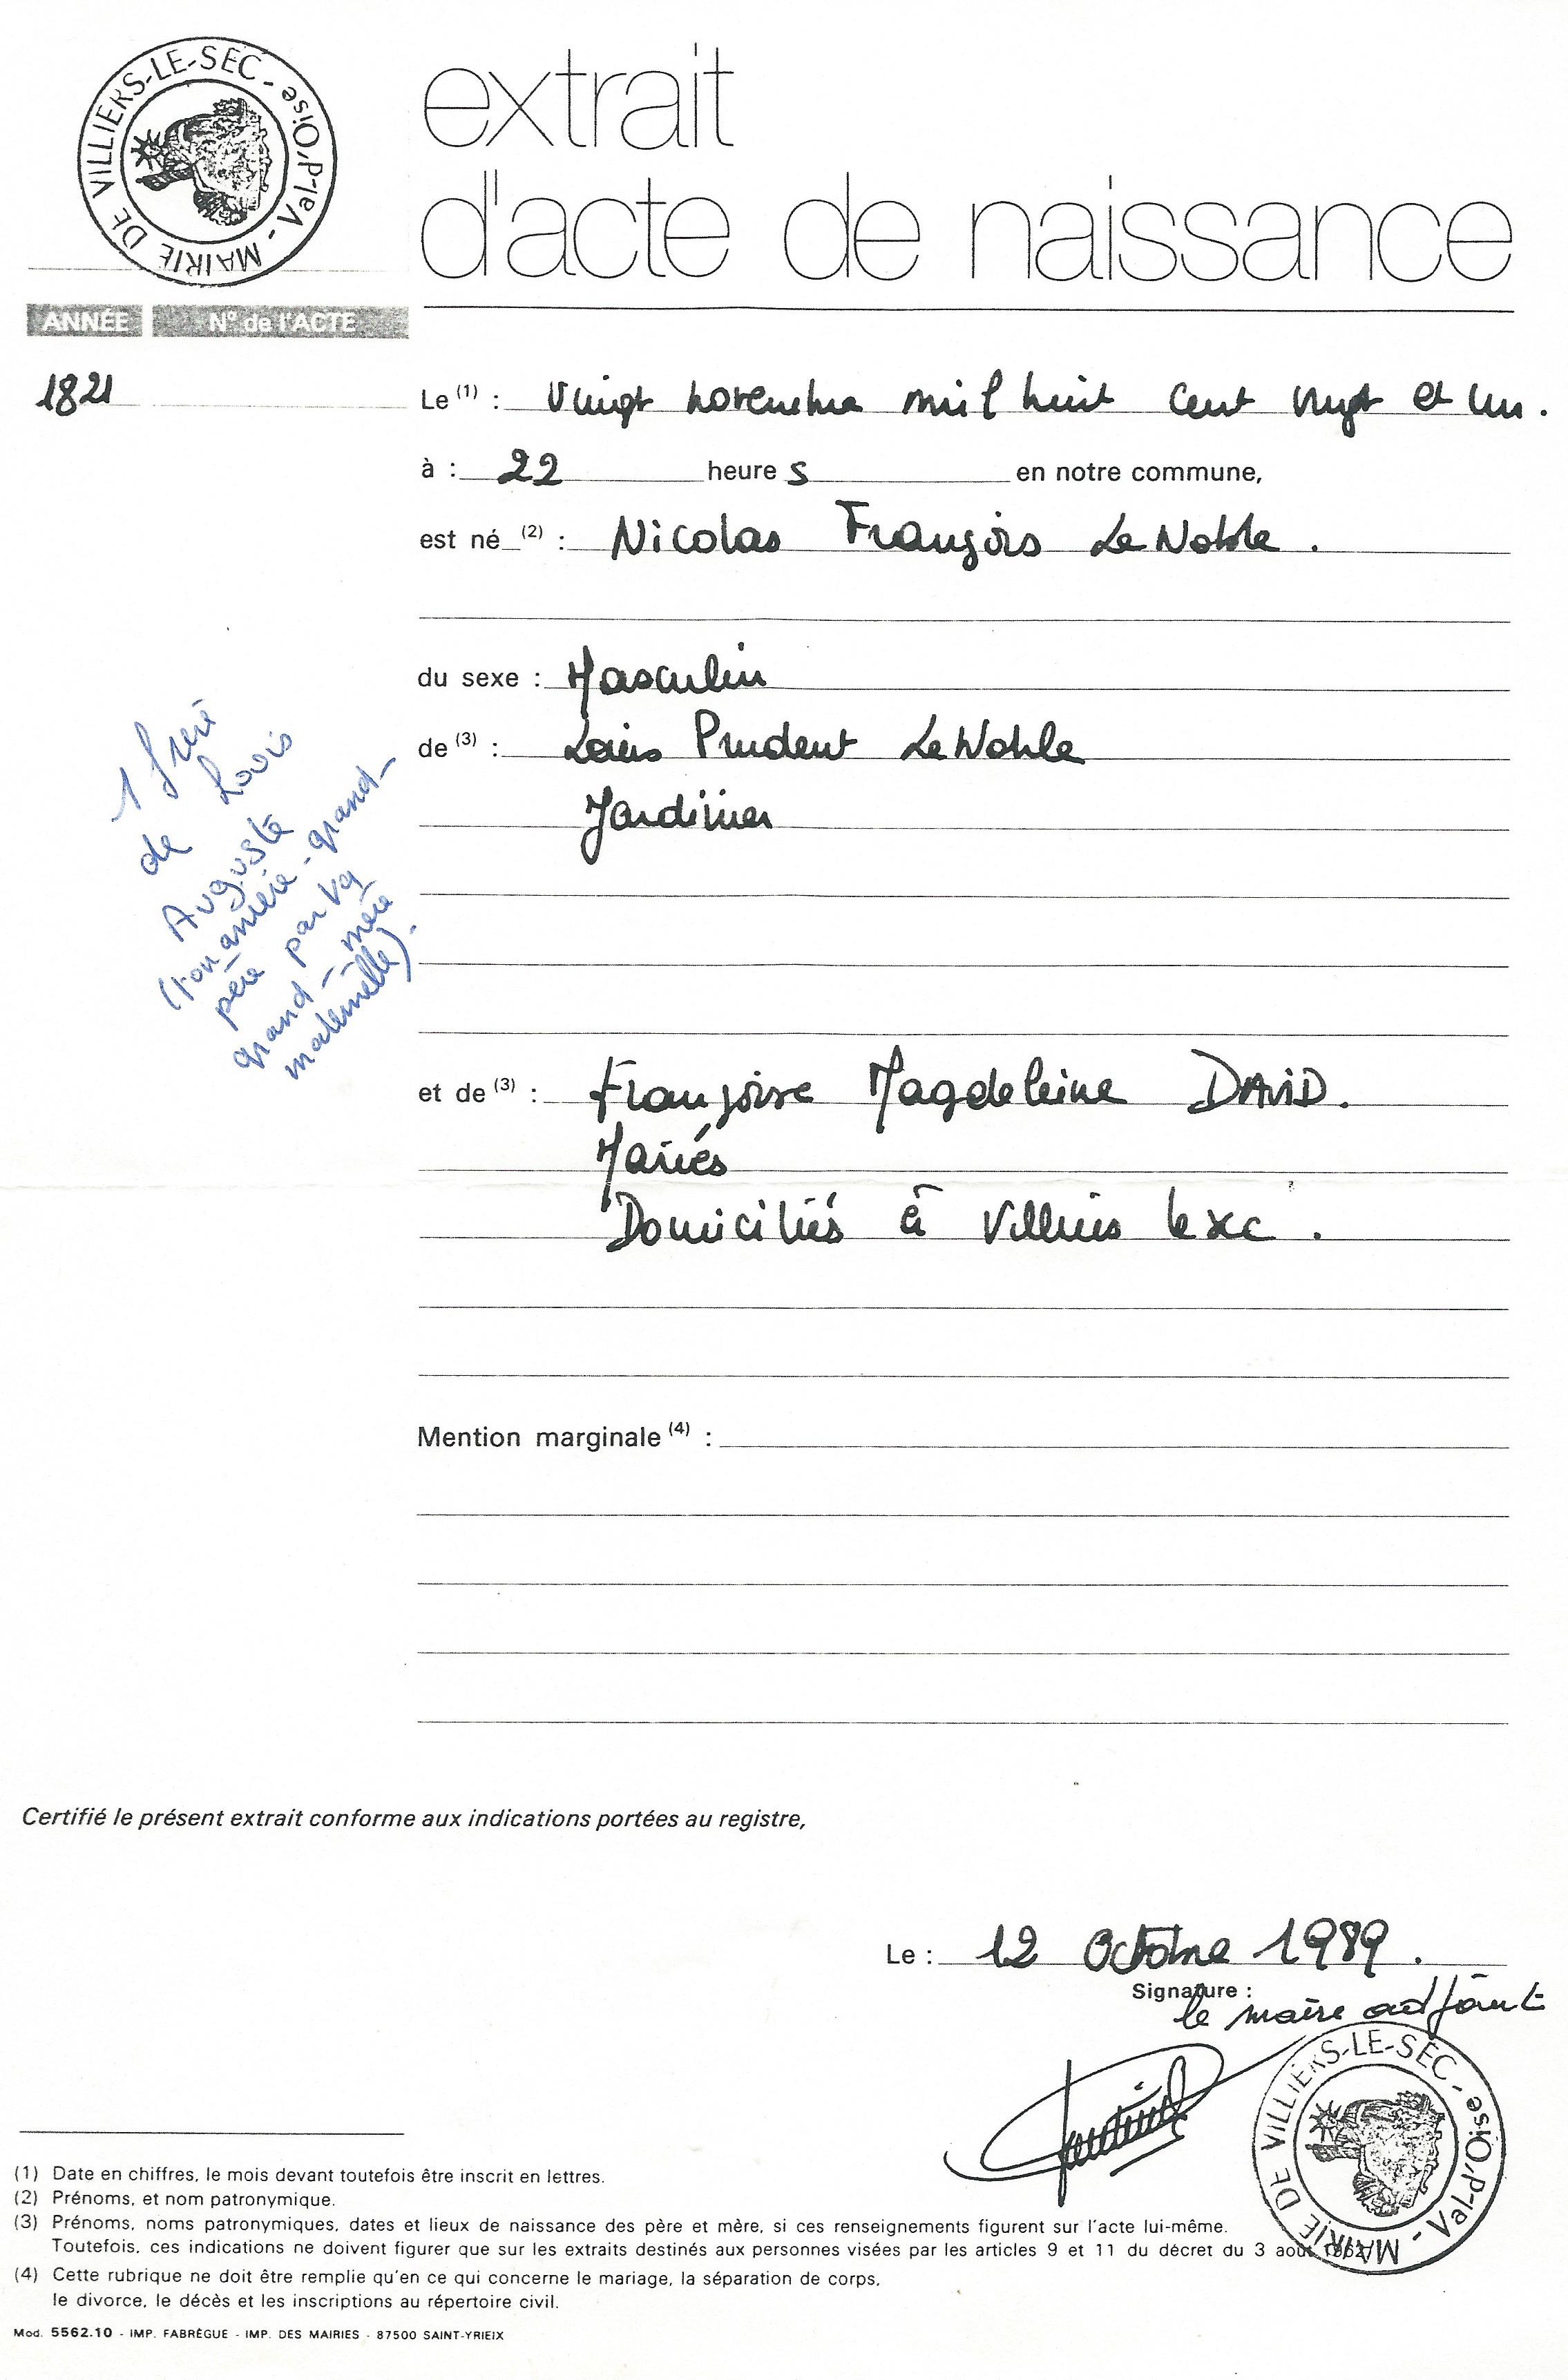 MAIRIE DE VILLIERS-LE-SEC - Val-d'Oise
extrait
d'acte de naissance
ANNÉE N° de l'ACTE
1821
Le (1) : Vingt novembre mil huit cent vingt et un.
à : 22 heures en notre commune,
est né (2) : Nicolas François LeNoble.
du sexe : Masculin
de (3) : Louis Prudent LeNoble
Jardinier
1 frère
de Louis
Auguste
(ton arrière-grand-
père par ta
grand-mère
maternelle).
et de (3) : Françoise Magdeleine DAVID.
Mariés
Domiciliés à Villiers le sec.
Mention marginale (4) :
Certifié le présent extrait conforme aux indications portées au registre,
Le : 12 Octobre 1989.
Signature :
le maire adjoint
MAIRIE DE VILLIERS-LE-SEC - Val-d'Oise
(1) Date en chiffres, le mois devant toutefois être inscrit en lettres.
(2) Prénoms, et nom patronymique.
(3) Prénoms, noms patronymiques, dates et lieux de naissance des père et mère, si ces renseignements figurent sur l'acte lui-même.
Toutefois, ces indications ne doivent figurer que sur les extraits destinés aux personnes visées par les articles 9 et 11 du décret du 3 août 1962.
(4) Cette rubrique ne doit être remplie qu'en ce qui concerne le mariage, la séparation de corps,
le divorce, le décès et les inscriptions au répertoire civil.
Mod. 5562.10 - IMP. FABRÈGUE - IMP. DES MAIRIES - 87500 SAINT-YRIEIX